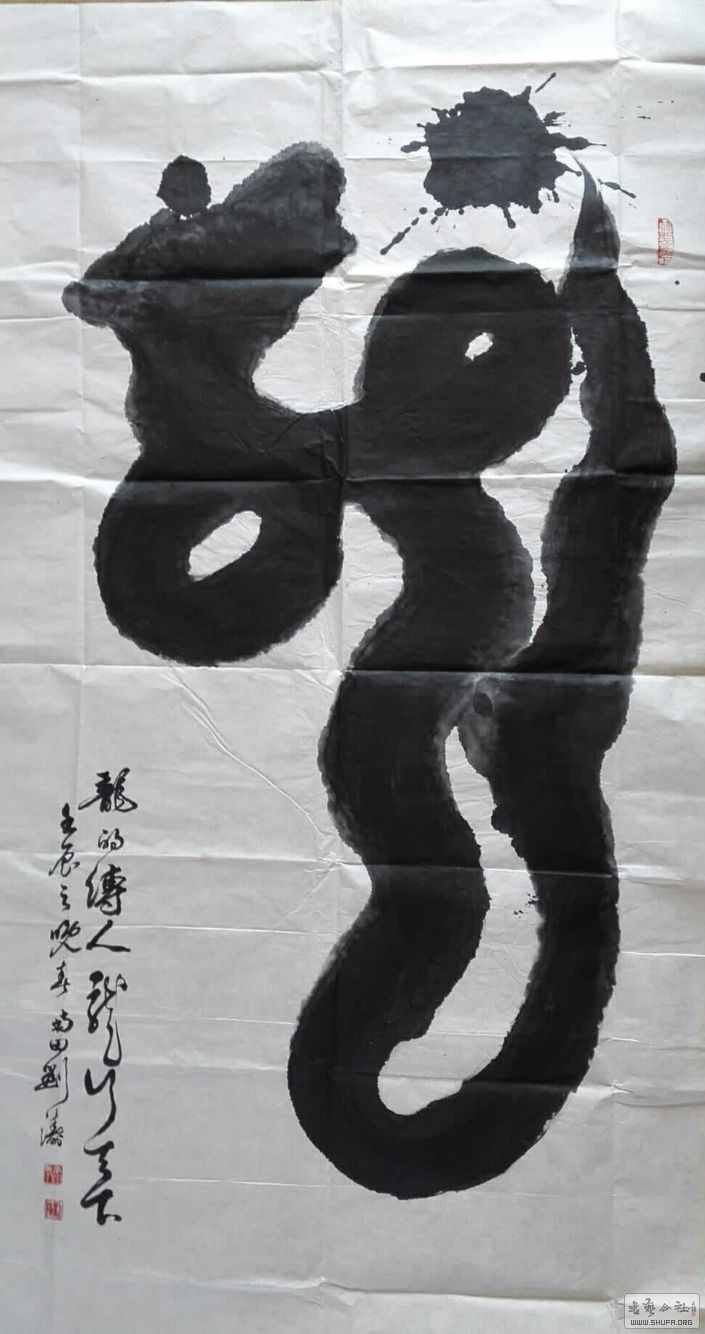 龍
龍的傳人龍行天下
壬辰之晚春莆田劉濤
書藝公社
WWW.SHUFA.ORG